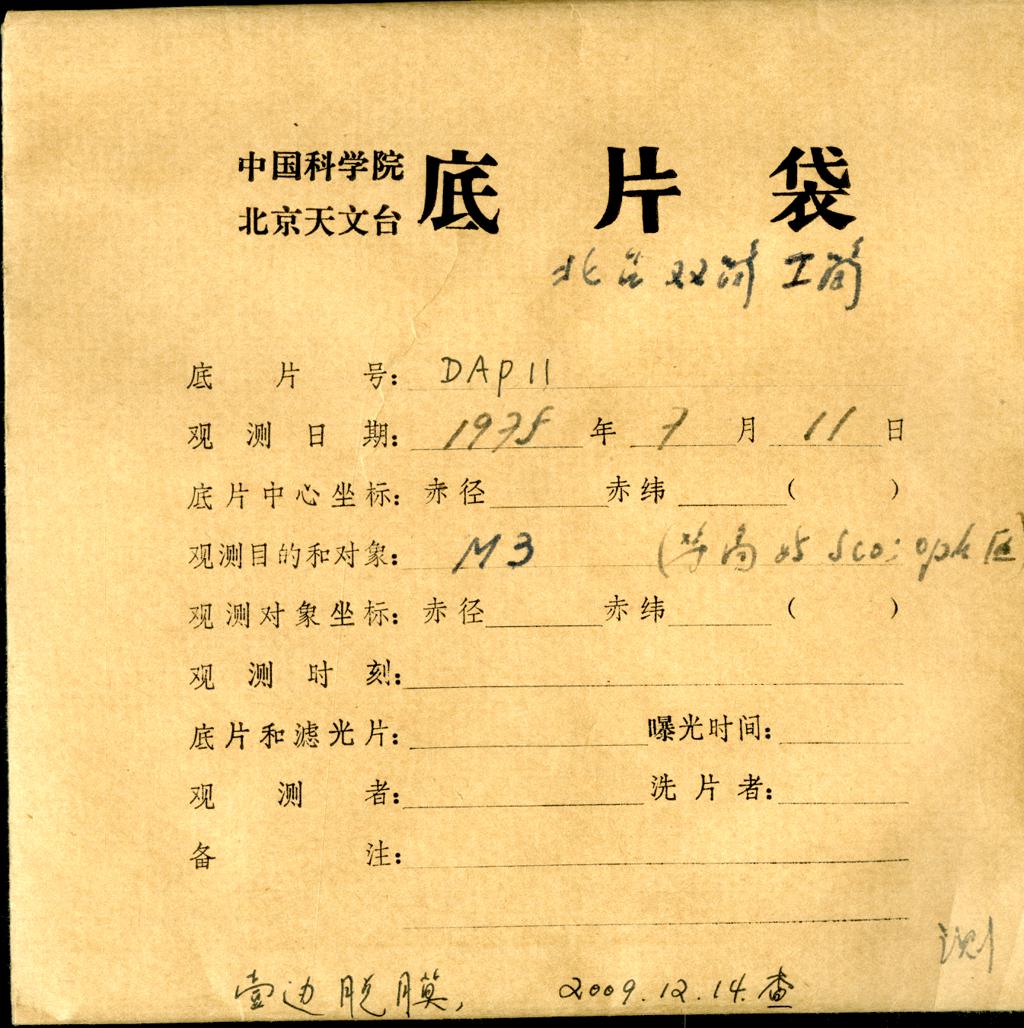 中国科学院 底片袋
北京天文台
北台双筒 工筒
底片号： DAP11
观测日期： 1975 年 7 月 11 日
底片中心坐标： 赤径 赤纬 （ ）
观测目的和对象： M3 Sco: oph 区)
观测对象坐标： 赤径 赤纬 （ ）
观测时刻：
底片和滤光片： 曝光时间：
观测者： 洗片者：
备注：
测
壹边脱膜, 2009.12.14.查